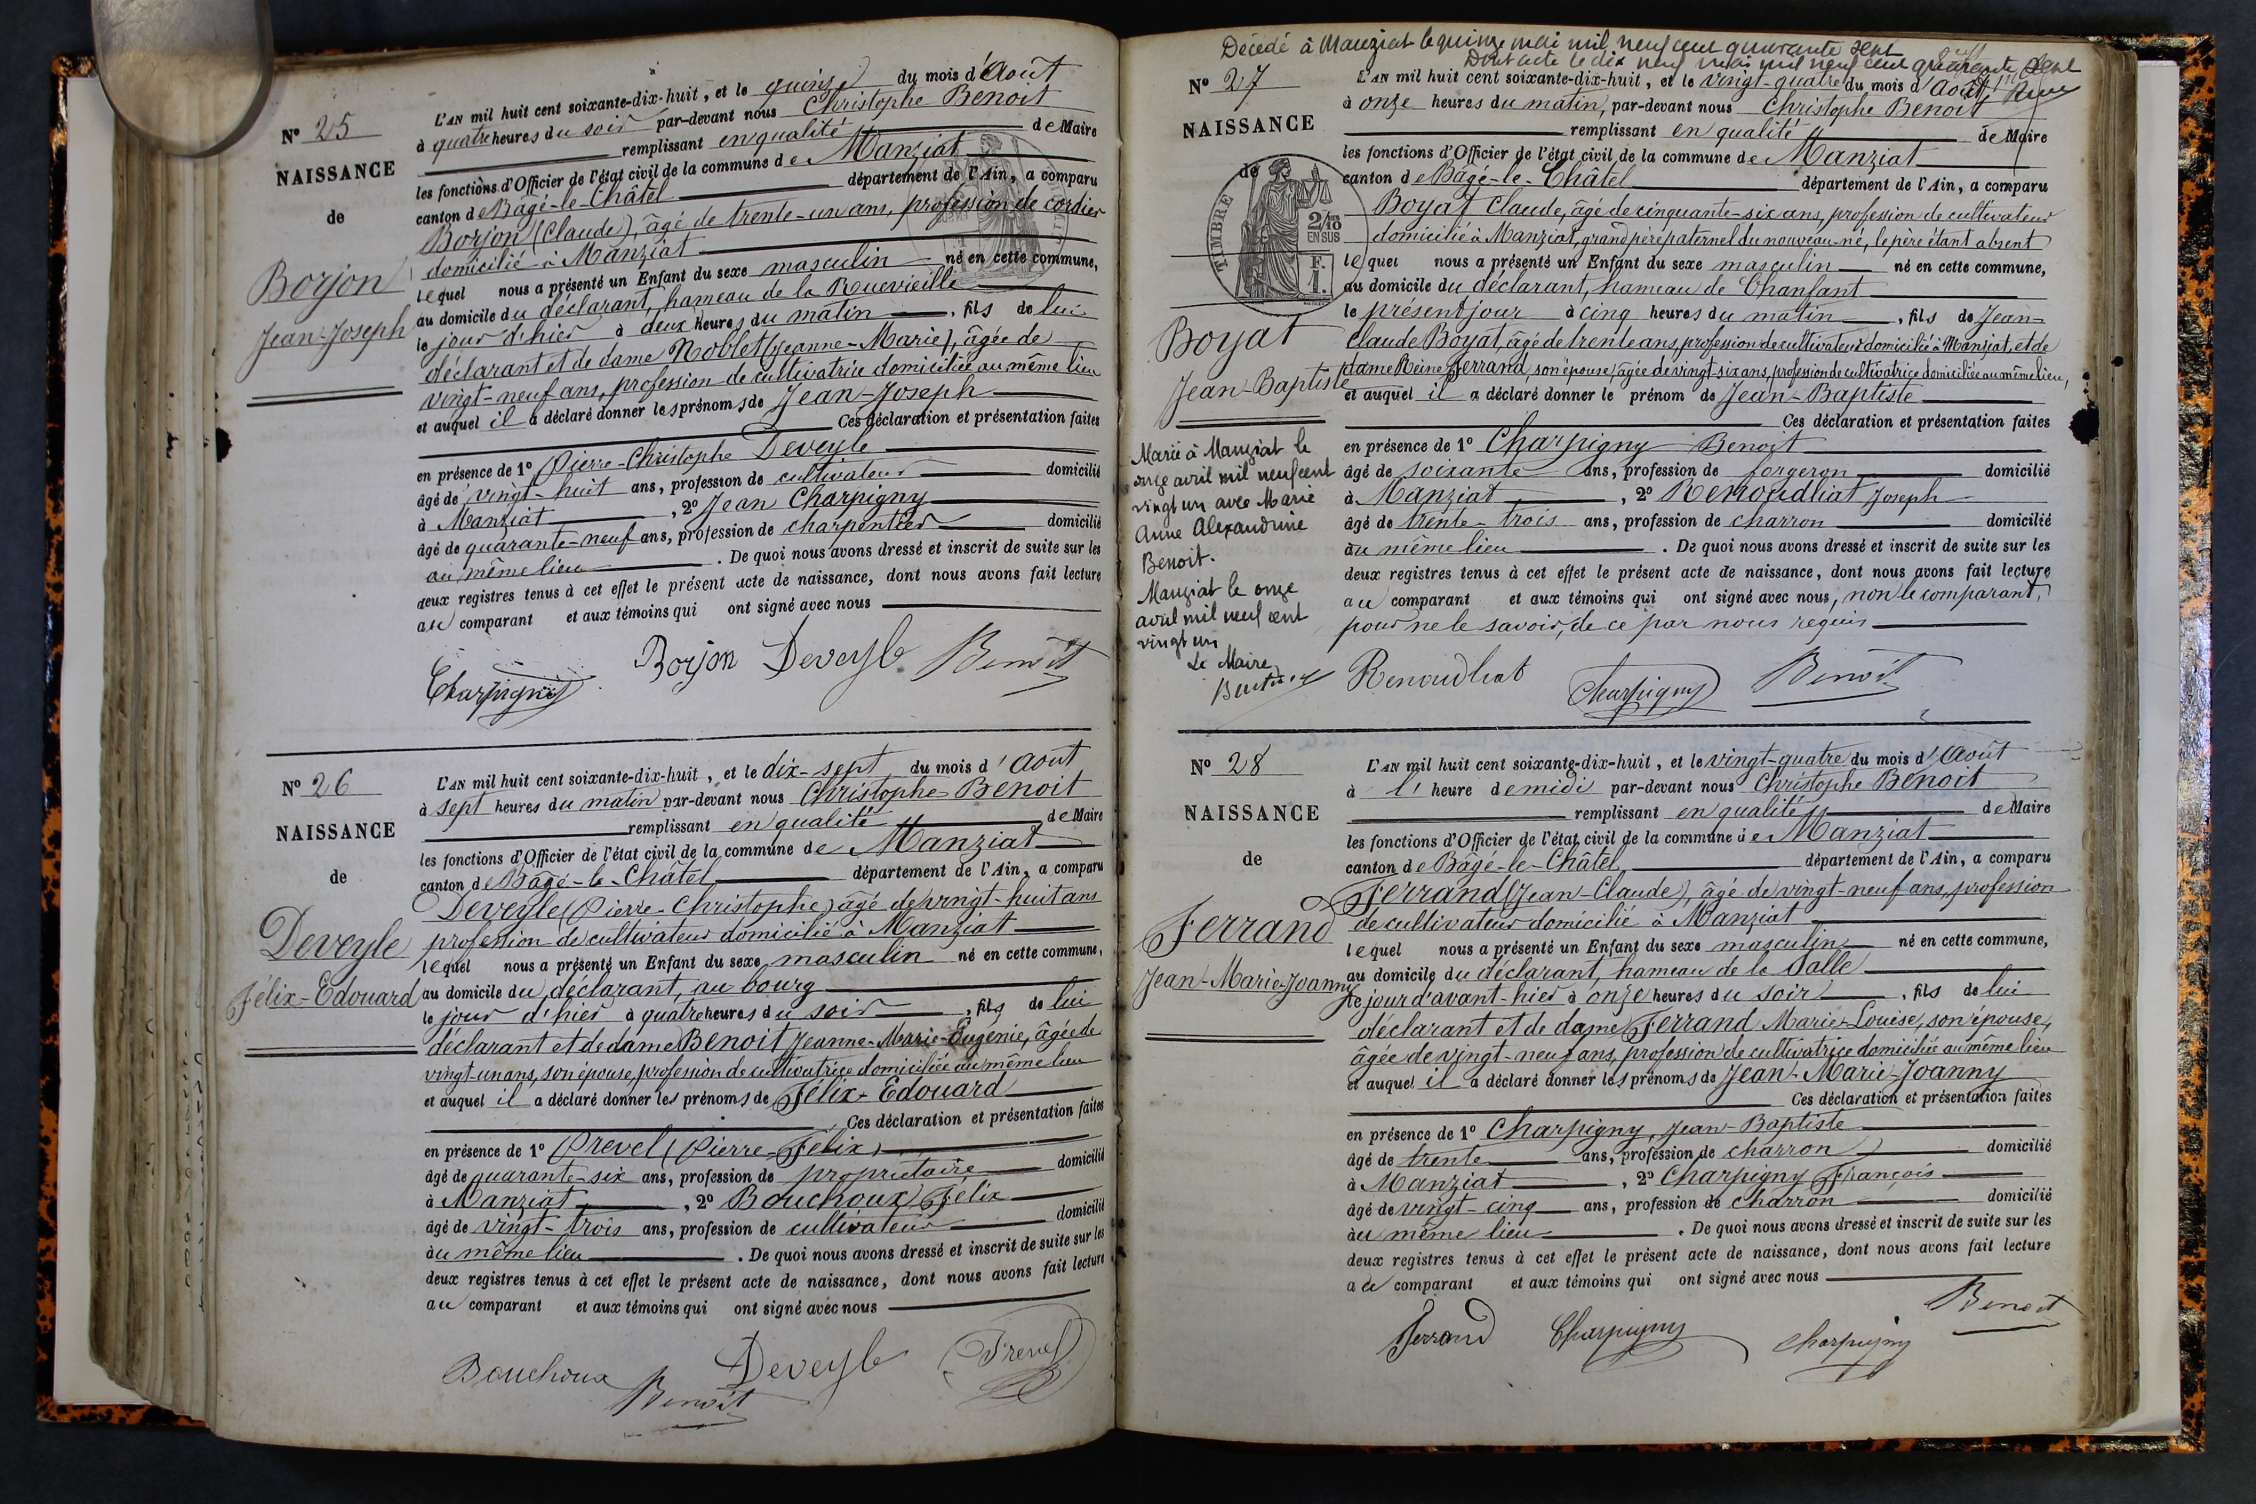 N° 25
NAISSANCE
de
Borjon
Jean-Joseph
L'AN mil huit cent soixante-dix-huit, et le quinze du mois d'Août
à quatre heures du soir par-devant nous Christophe Benoit
remplissant en qualité de Maire
les fonctions d'Officier de l'état civil de la commune de Manziat
canton de Bâgé-le-Châtel département de l'Ain, a comparu
Borjon (Claude), âgé de trente-un ans, profession de cordier
domicilié à Manziat
lequel nous a présenté un Enfant du sexe masculin né en cette commune,
au domicile du déclarant, hameau de la Ruevieille
le jour d'hier à deux heures du matin, fils de lui
déclarant et de dame Noblet (Jeanne-Marie), âgée de
vingt-neuf ans, profession de cultivatrice domiciliée au même lieu
et auquel il a déclaré donner les prénoms de Jean-Joseph
Ces déclaration et présentation faites
en présence de 1° Pierre-Christophe Deveyle
âgé de vingt-huit ans, profession de cultivateur domicilié
à Manziat, 2° Jean Charpigny
âgé de quarante-neuf ans, profession de charpentier domicilié
au même lieu. De quoi nous avons dressé et inscrit de suite sur les
deux registres tenus à cet effet le présent acte de naissance, dont nous avons fait lecture
au comparant et aux témoins qui ont signé avec nous
Charpigny Borjon Deveyle Benoit
N° 26
NAISSANCE
de
Deveyle
Félix-Edouard
L'AN mil huit cent soixante-dix-huit, et le dix-sept du mois d'Août
à sept heures du matin par-devant nous Christophe Benoit
remplissant en qualité de Maire
les fonctions d'Officier de l'état civil de la commune de Manziat
canton de Bâgé-le-Châtel département de l'Ain, a comparu
Deveyle (Pierre-Christophe) âgé de vingt-huit ans
profession de cultivateur domicilié à Manziat
lequel nous a présenté un Enfant du sexe masculin né en cette commune,
au domicile du déclarant, au bourg
le jour d'hier à quatre heures du soir, fils de lui
déclarant et de dame Benoit Jeanne-Marie-Eugénie, âgée de
vingt-un ans, son épouse, profession de cultivatrice domiciliée au même lieu
et auquel il a déclaré donner les prénoms de Félix-Edouard
Ces déclaration et présentation faites
en présence de 1° Prevel (Pierre-Félix)
âgé de quarante-six ans, profession de propriétaire domicilié
à Manziat, 2° Bouchoux Félix
âgé de vingt-trois ans, profession de cultivateur domicilié
au même lieu. De quoi nous avons dressé et inscrit de suite sur les
deux registres tenus à cet effet le présent acte de naissance, dont nous avons fait lecture
au comparant et aux témoins qui ont signé avec nous
Bouchoux Benoit Deveyle Prevel
Décédé à Manziat le quinze mai mil neuf cent quarante sept
Dont acte le dix neuf mai mil neuf cent quarante sept
N° 27
NAISSANCE
de
TIMBRE
2/10
EN SUS
Boyat
Jean-Baptiste
Marié à Manziat le
onze avril mil neuf cent
vingt un avec Marie
Anne Alexandrine
Benoit.
Manziat le onze
avril mil neuf cent
vingt un
Le Maire
L'AN mil huit cent soixante-dix-huit, et le vingt-quatre du mois d'Août
à onze heures du matin, par-devant nous Christophe Benoit
remplissant en qualité de Maire
les fonctions d'Officier de l'état civil de la commune de Manziat
canton de Bâgé-le-Châtel département de l'Ain, a comparu
Boyat Claude, âgé de cinquante-six ans, profession de cultivateur
domicilié à Manziat, grand père paternel du nouveau-né, le père étant absent
lequel nous a présenté un Enfant du sexe masculin né en cette commune,
au domicile du déclarant, hameau de Chanfant
le présent jour à cinq heures du matin, fils de Jean-
Claude Boyat, âgé de trente ans, profession de cultivateur domicilié à Manziat, et de
dame Reine Ferrand, son épouse, âgée de vingt-six ans, profession de cultivatrice domiciliée au même lieu,
et auquel il a déclaré donner le prénom de Jean-Baptiste
Ces déclaration et présentation faites
en présence de 1° Charpigny Benoit
âgé de soixante ans, profession de forgeron domicilié
à Manziat, 2° Renoudliat Joseph
âgé de trente-trois ans, profession de charron domicilié
au même lieu. De quoi nous avons dressé et inscrit de suite sur les
deux registres tenus à cet effet le présent acte de naissance, dont nous avons fait lecture
au comparant et aux témoins qui ont signé avec nous, non le comparant,
pour ne le savoir, de ce par nous requis
Renoudliat Charpigny Benoit
N° 28
NAISSANCE
de
Ferrand
Jean-Marie-Joanny
L'AN mil huit cent soixante-dix-huit, et le vingt-quatre du mois d'Août
à l'heure de midi par-devant nous Christophe Benoit
remplissant en qualité de Maire
les fonctions d'Officier de l'état civil de la commune de Manziat
canton de Bâgé-le-Châtel département de l'Ain, a comparu
Ferrand (Jean-Claude), âgé de vingt-neuf ans, profession
de cultivateur domicilié à Manziat
lequel nous a présenté un Enfant du sexe masculin né en cette commune,
au domicile du déclarant, hameau de la Salle
le jour d'avant-hier à onze heures du soir, fils de lui
déclarant et de dame Ferrand Marie-Louise, son épouse,
âgée de vingt-neuf ans, profession de cultivatrice domiciliée au même lieu
et auquel il a déclaré donner les prénoms de Jean-Marie-Joanny
Ces déclaration et présentation faites
en présence de 1° Charpigny, Jean-Baptiste
âgé de trente ans, profession de charron domicilié
à Manziat, 2° Charpigny François
âgé de vingt-cinq ans, profession de charron domicilié
au même lieu. De quoi nous avons dressé et inscrit de suite sur les
deux registres tenus à cet effet le présent acte de naissance, dont nous avons fait lecture
au comparant et aux témoins qui ont signé avec nous
Ferrand Charpigny Charpigny Benoit